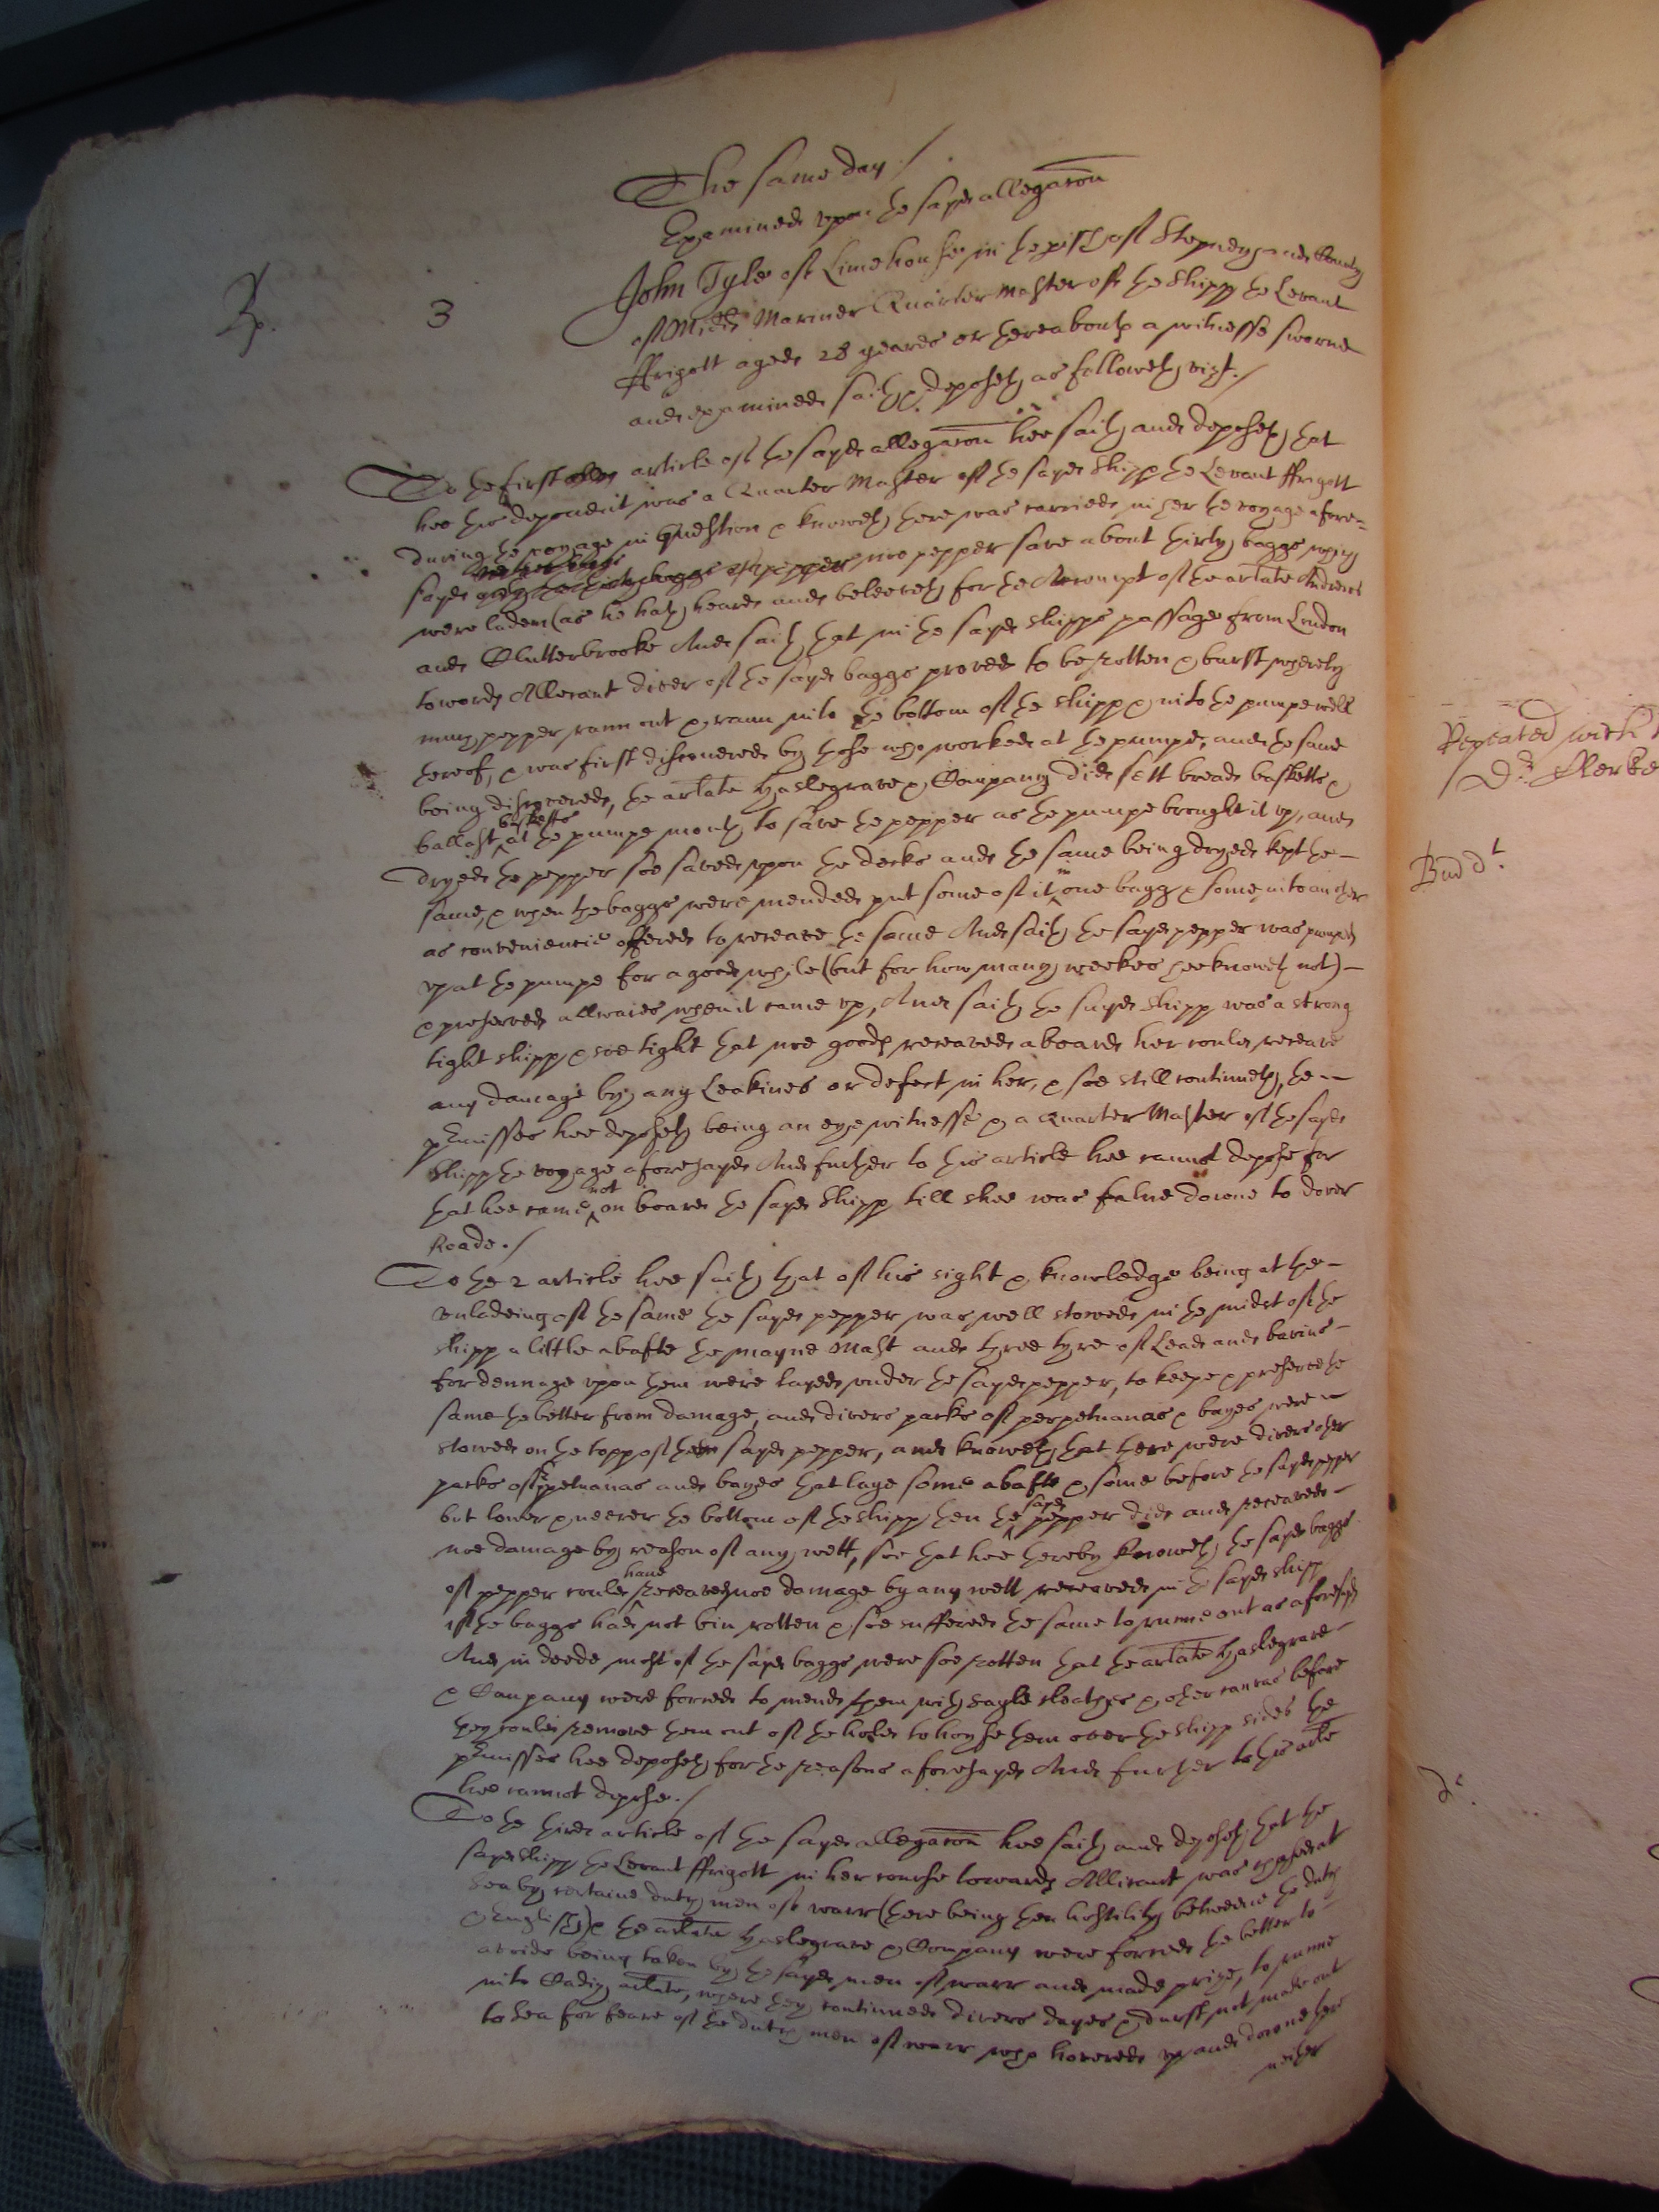 The same day ./
Examined upon the sayd allegac̃on
Rp. 3
John Tyler of Limehouse in the pish of Stepney and County
of Midds Mariner Quarter Master of the shipp the Levant
ffrigott aged 28 yeares or thereabouts a witnesse sworne
and examined saith & deposeth as followeth vizt./
To the first article of the sayd allegac̃on hee saith and deposeth that
hee this deponent was a Quarter Master of the sayd shipp the Levant ffrigott
during the voyage in question & knoweth there was carried in her the voyage afore-
sayd noe pepper save about thirty baggs which
were laden (as he hath heard and beleeveth for the Accompt of the arlate Andrewes
and Clutterbrooke And saith that in the sayd shipps passage from London
towards Allicant divers of the sayd baggs proved to be rotten & burst whereby
much pepper rann out & rann into the bottom of the shipp & into the pumpe well
thereof, & was first discovered by those who worked at the pumpe, and the same
being discovered, the arlate Haslegrave & Company did sett bread basketts &
ballast basketts at the pumpe mouth to save the pepper as the pumpe brought it up, and
dryed the pepper soe saved upon the decks and the same being dryed kept the -
same, & when the baggs were mended put some of it in one bagg & some into another
as convenience offered to receave the same And saith the sayd pepper was pumped
up at the pumpe for a good while (but for how many weekes hee knoweth not) -
& preserved allwaies when it came up, And saith the sayd shipp was a strong
tight shipp & soe tight that noe goods receaved aboard her could receave
any damage by any Leakines or defect in her, & soe still continueth, the -
pr̃misses hee deposeth being an eye witnesse & a Quarter Master of the sayd
shipp the voyage aforesayd And further to this article hee cannot depose for
that hee came not on board the sayd shipp till shee was falne downe to dover
Roade ./
To the 2 article hee saith that of his sight & knowledge being at the -
unladeing of the same the sayd pepper was well stowed in the midst of the
shipp a little abafte the mayne Mast and three tyre of Lead and bavins -
for dennage upon them were layed under the sayd pepper, to keepe & preserve the
same the better from damage, and divers packs of perpetuanas & bayes were -
stowed on the topp of the sayd pepper, and knoweth that there were divers other
packs of ppetuanas and bayes that laye some abafte & some before the sayd pepper
but lower & neerer the bottom of the shipp then the sayd pepper did and receaved -
noe damage by reason of any wett, soe that hee thereby knoweth the sayd baggs
of pepper could have receaved noe damage by any wett receaved in the sayd shipp
if the baggs had not bin rotten & soe suffered the same to runne out as aforesayd
And in deede most of the sayd baggs were soe rotten that the arlate Haslegrave -
& Company were forced to mend them with sayle cloathes & other canvas before
they could remove them out of the hold to hoyse them over the shipp sides the
pr̃misses hee deposeth for the reasons aforesayd And further to this arlẽ
hee cannot depose ./
To the third article of the sayd allegac̃on hee saith and deposeth that the
sayd shipp the Levant ffrigott in her course towards Allicant was chased at
Sea by certaine dutch men of warr (there being then hostility betweene the dutch
& English) & the arlate Haslegrave & Company were forced the better to -
avoide being taken by the sayd men of warr and made prize, to runne
into Cadiz arlate, where they continued divers dayes & durst not make out
to sea for feare of the dutch men of warr who hovered up and downe there
neither
Repeated with
Dr Clerke
Bud dt.